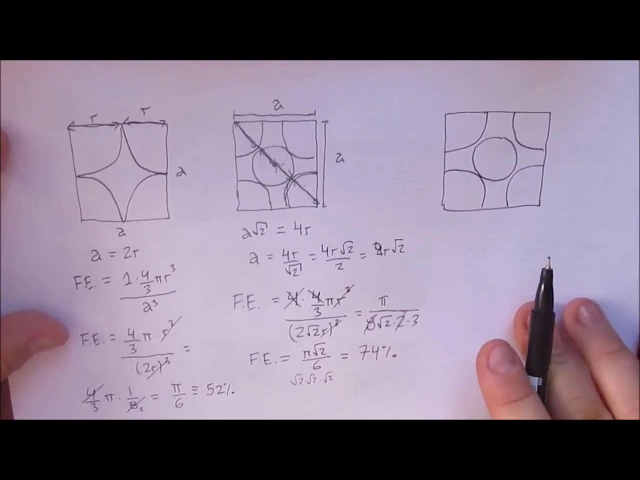 r r
a
a
a = 2r
F.E. = 1·4/3πr³ / a³
F.E. = 4/3 π·r³ / (2r)³ =
4/3 π · 1/8₂ = π/6 ≅ 52%
a
a
a√2 = 4r
a = 4r/√2 = 4r√2/2 = 2r√2
F.E. = 4·4/3πr³ / (2√2r)³ = π / 8√2·2·3
F.E. = π√2/6 = 74%
√2·√2·√2